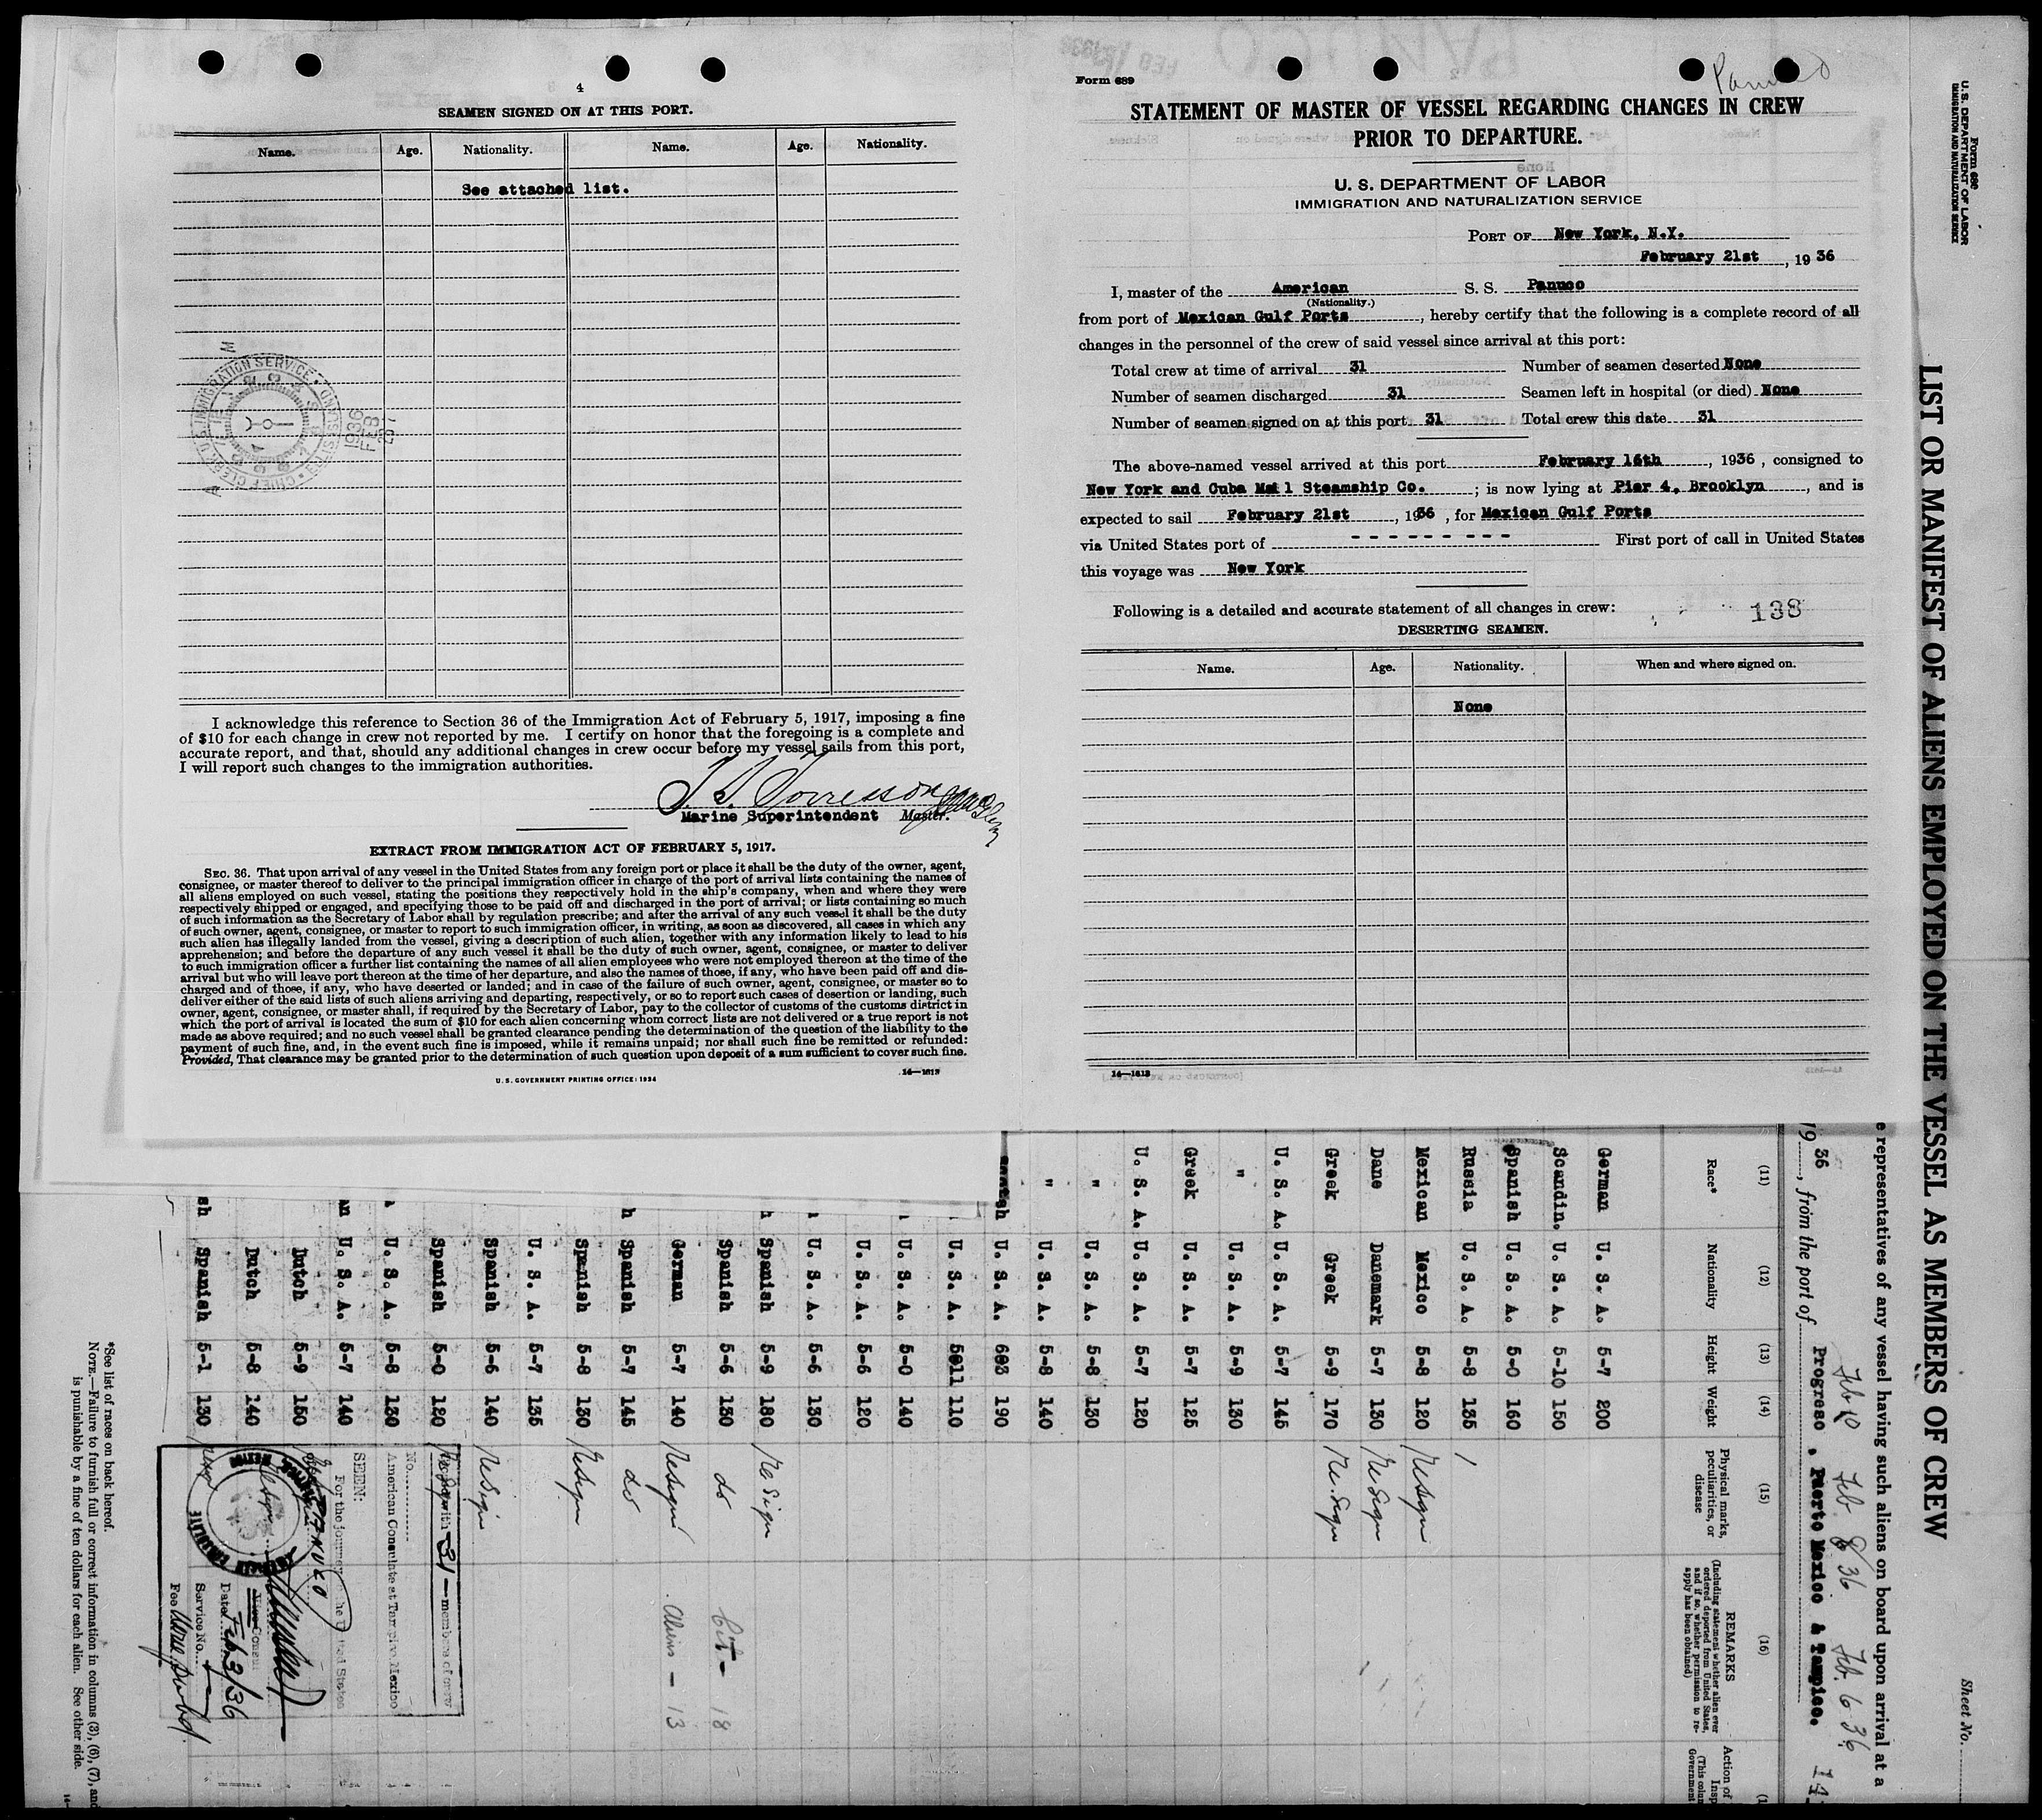 4
SEAMEN SIGNED ON AT THIS PORT.
Name. Age. Nationality. Name. Age. Nationality.
See attached list.
I acknowledge this reference to Section 36 of the Immigration Act of February 5, 1917, imposing a fine
of $10 for each change in crew not reported by me. I certify on honor that the foregoing is a complete and
accurate report, and that, should any additional changes in crew occur before my vessel sails from this port,
I will report such changes to the immigration authorities.
Marine Superintendent Master.
EXTRACT FROM IMMIGRATION ACT OF FEBRUARY 5, 1917.
SEC. 36. That upon arrival of any vessel in the United States from any foreign port or place it shall be the duty of the owner, agent,
consignee, or master thereof to deliver to the principal immigration officer in charge of the port of arrival lists containing the names of
all aliens employed on such vessel, stating the positions they respectively hold in the ship's company, when and where they were
respectively shipped or engaged, and specifying those to be paid off and discharged in the port of arrival; or lists containing so much
of such information as the Secretary of Labor shall by regulation prescribe; and after the arrival of any such vessel it shall be the duty
of such owner, agent, consignee, or master to report to such immigration officer, in writing, as soon as discovered, all cases in which any
such alien has illegally landed from the vessel, giving a description of such alien, together with any information likely to lead to his
apprehension; and before the departure of any such vessel it shall be the duty of such owner, agent, consignee, or master to deliver
to such immigration officer a further list containing the names of all alien employees who were not employed thereon at the time of the
arrival but who will leave port thereon at the time of her departure, and also the names of those, if any, who have been paid off and dis-
charged and of those, if any, who have deserted or landed; and in case of the failure of such owner, agent, consignee, or master so to
deliver either of the said lists of such aliens arriving and departing, respectively, or so to report such cases of desertion or landing, such
owner, agent, consignee, or master shall, if required by the Secretary of Labor, pay to the collector of customs of the customs district in
which the port of arrival is located the sum of $10 for each alien concerning whom correct lists are not delivered or a true report is not
made as above required; and no such vessel shall be granted clearance pending the determination of the question of the liability to the
payment of such fine, and, in the event such fine is imposed, while it remains unpaid; nor shall such fine be remitted or refunded:
Provided, That clearance may be granted prior to the determination of such question upon deposit of a sum sufficient to cover such fine.
U. S. GOVERNMENT PRINTING OFFICE: 1934
14—1613
Form 689
Panuco
STATEMENT OF MASTER OF VESSEL REGARDING CHANGES IN CREW
PRIOR TO DEPARTURE.
U. S. DEPARTMENT OF LABOR
IMMIGRATION AND NATURALIZATION SERVICE
PORT OF New York, N.Y.
February 21st, 1936
I, master of the American S. S. Panuco
(Nationality.)
from port of Mexican Gulf Ports, hereby certify that the following is a complete record of all
changes in the personnel of the crew of said vessel since arrival at this port:
Total crew at time of arrival 31 Number of seamen deserted None
Number of seamen discharged 31 Seamen left in hospital (or died) None
Number of seamen signed on at this port 31 Total crew this date 31
The above-named vessel arrived at this port February 16th, 1936, consigned to
New York and Cuba Mail Steamship Co.; is now lying at Pier 4, Brooklyn, and is
expected to sail February 21st, 1936, for Mexican Gulf Ports
via United States port of - - - - - - - - - First port of call in United States
this voyage was New York
Following is a detailed and accurate statement of all changes in crew:
138
DESERTING SEAMEN.
Name. Age. Nationality. When and where signed on.
None
14—1613
Form 680
U. S. DEPARTMENT OF LABOR
IMMIGRATION AND NATURALIZATION SERVICE
LIST OR MANIFEST OF ALIENS EMPLOYED ON THE VESSEL AS MEMBERS OF CREW
Sheet No.
e representatives of any vessel having such aliens on board upon arrival at a
Feb 10 Feb 8/36 Feb. 6 36
19 36, from the port of Progreso, Puerto Mexico & Tampico.
(11) (12) (13) (14) (15) (16)
Race* Nationality Height Weight Physical marks, peculiarities, or disease
REMARKS
(Including statement whether alien ever
ordered deported from United States,
and if so, whether permission to re-
apply has been obtained)
German U. S. A. 5-7 200
Scandin. U. S. A. 5-10 150
Spanish U. S. A. 5-0 160
Russia U. S. A. 5-8 135
Mexican Mexico 5-8 120 Resign
Dane Danemark 5-7 130 Resign
Greek Greek 5-9 170 Resign
U. S. A. U. S. A. 5-7 145
" U. S. A. 5-9 130
Greek U. S. A. 5-7 125
U. S. A. U. S. A. 5-7 120
" U. S. A. 5-8 130
" U. S. A. 5-8 140
U. S. A. 190
U. S. A. 110
U. S. A. 5-0 140
U. S. A. 5-6 120
U. S. A. 5-6 130
h Spanish 5-9 180 Resign
Spanish 5-6 130 do Cit - 18
German 5-7 140 Resign Aliens - 13
h Spanish 5-7 145 do
Spanish 5-8 130 Resign
U. S. A. 5-7 135
Spanish 5-6 140 Resign
Spanish 5-0 120
U. S. A. 5-8 130
an U. S. A. 5-7 140
Dutch 5-9 150
Dutch 5-8 140
sh Spanish 5-1 130
with 31 — members of crew
American Consulate at Tampico, Mexico
No.
SEEN:
For the journey to the United States
PANUCO
Vice Consul
Date Feb 3/36
Service No.
Fee
*See list of races on back hereof.
NOTE.—Failure to furnish full or correct information in columns (3), (6), (7), and
is punishable by a fine of ten dollars for each alien. See other side.